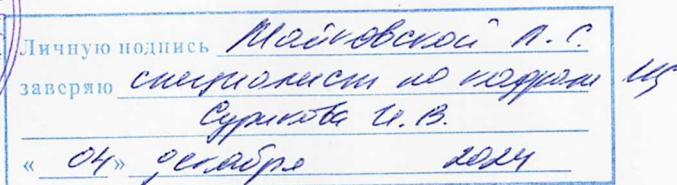 Личную подпись Майковской Л.С.
заверяю специалист по кадрам
Сурикова И.В.
«04» декабря 2024